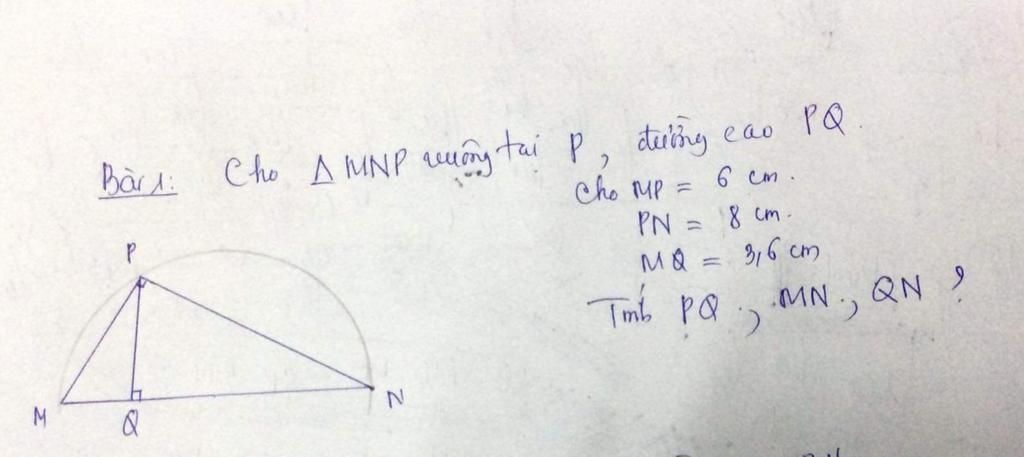 Bài 1: Cho Δ MNP vuông tại P, đường cao PQ.
Cho MP = 6 cm.
PN = 8 cm.
MQ = 3,6 cm
Tính PQ ; MN ; QN ?
P
M
Q
N